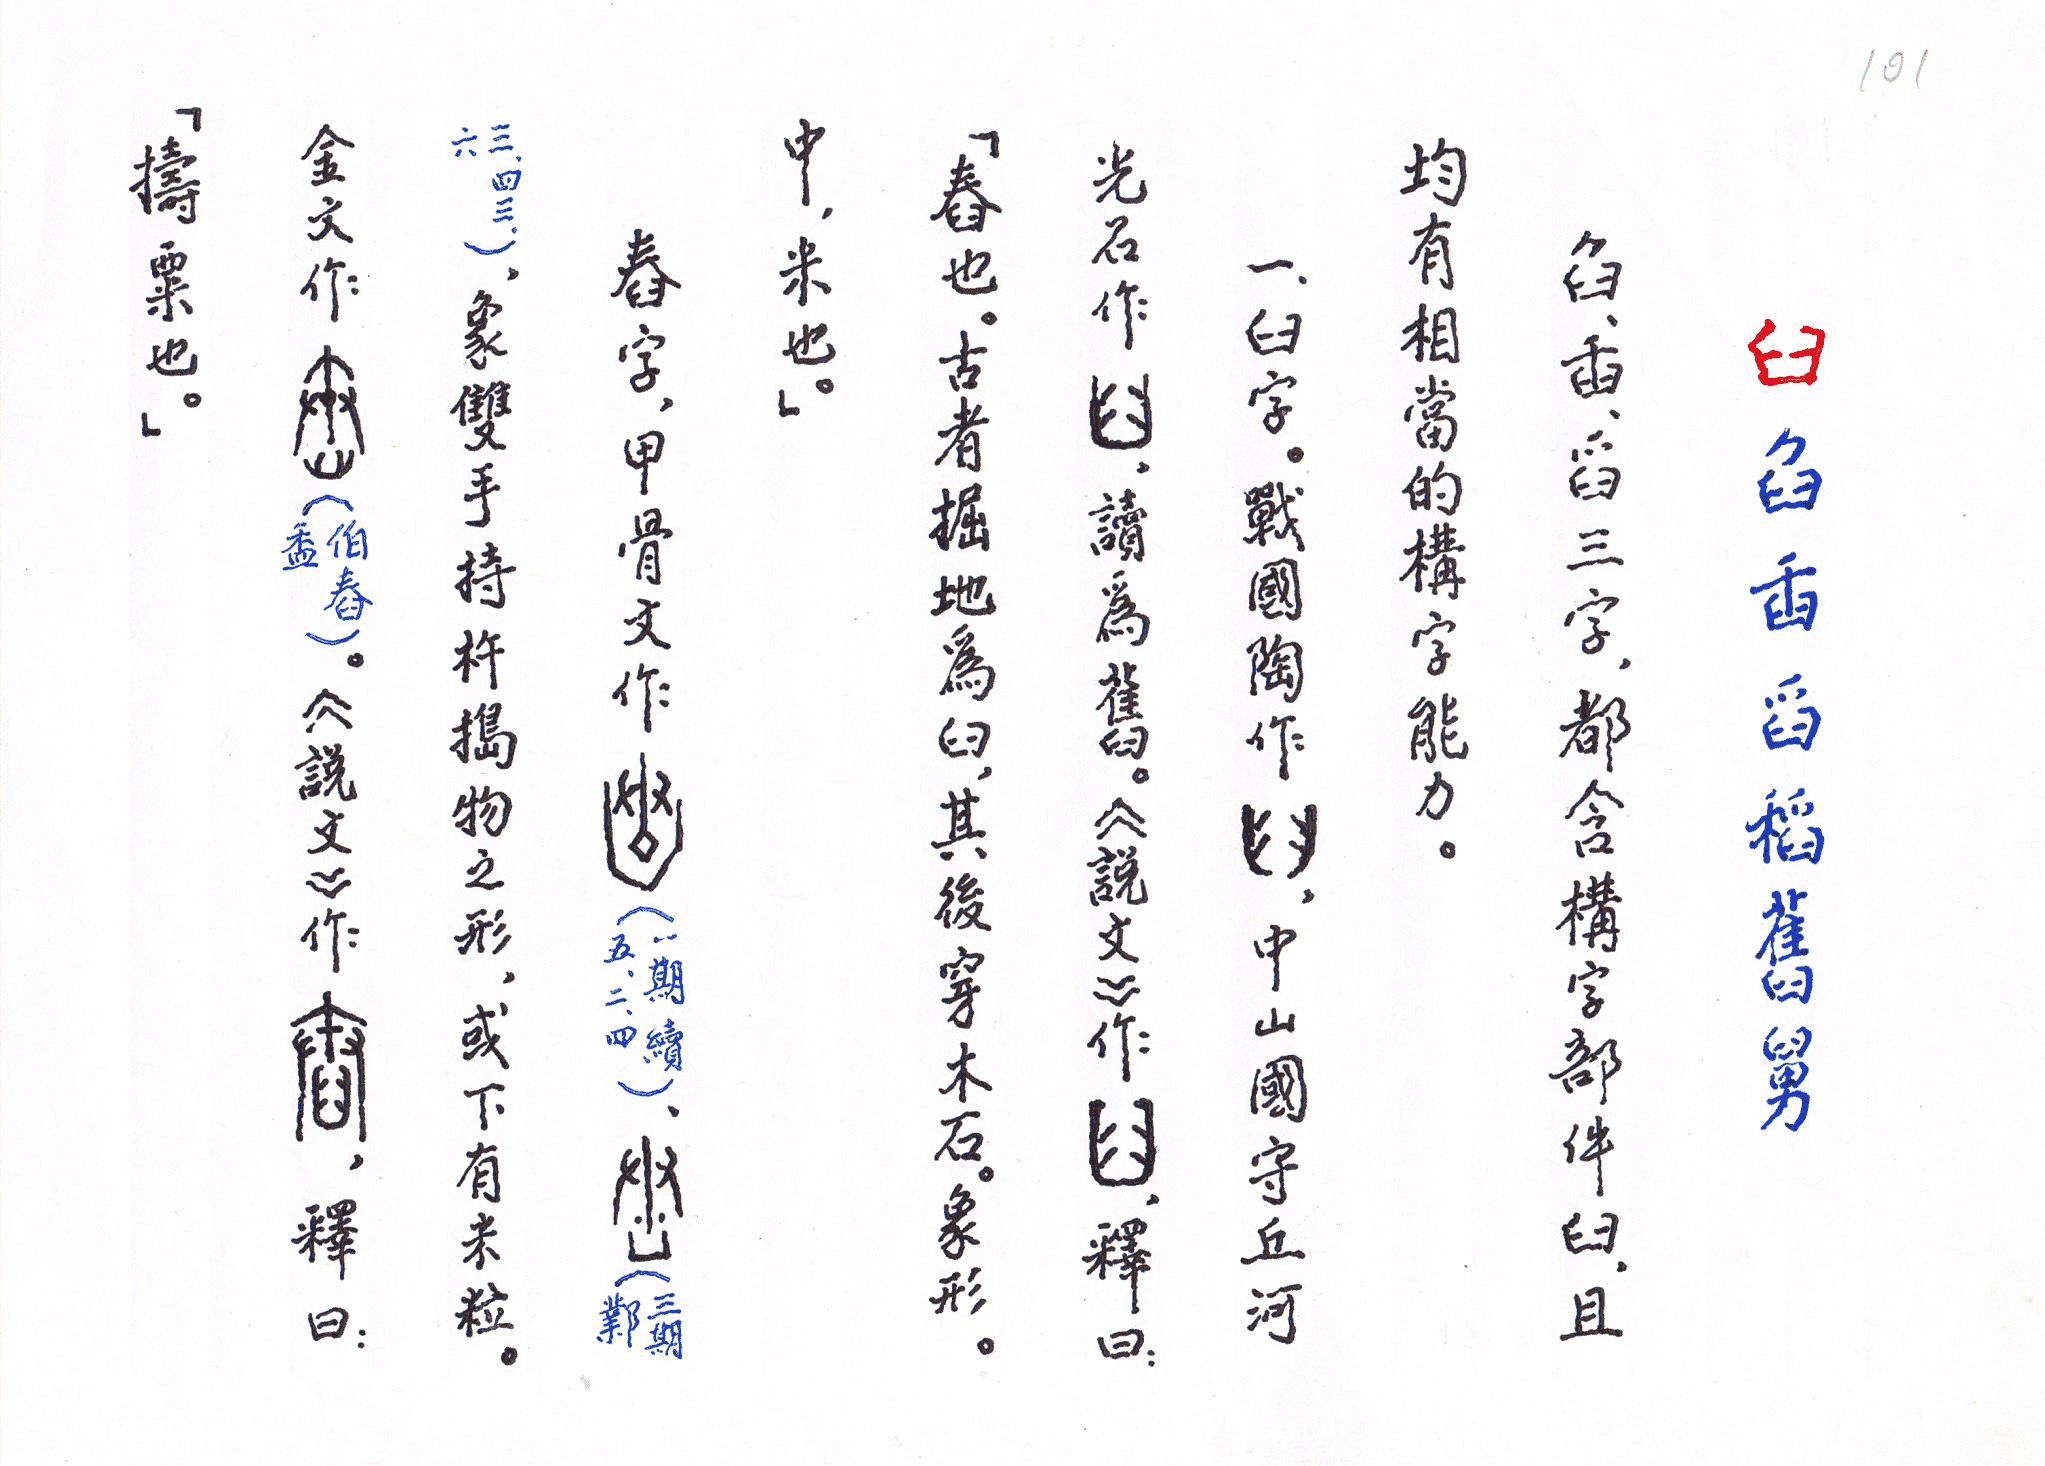 101
臼臽臿舀稻舊舅
臽、臿、舀三字，都含構字部件臼，且
均有相當的構字能力。
一、臼字。戰國陶作，中山國守丘河
光石作，讀為舊。《說文》作，釋曰：
「舂也。古者掘地為臼，其後穿木石。象形。
中，米也。」
舂字，甲骨文作（一期續五、二、四）、（三期鄴
三、四三、六），象雙手持杵搗物之形，或下有米粒。
金文作（伯舂盉）。《說文》作，釋曰：
「擣粟也。」